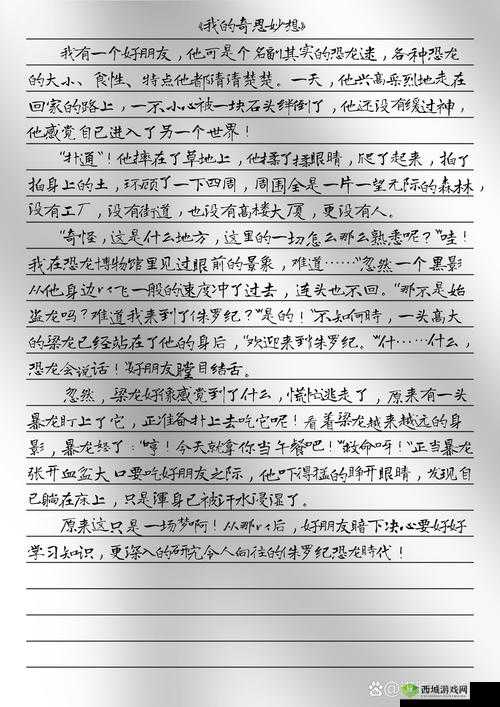 《我的奇思妙想》
我有一个好朋友，他可是个名副其实的恐龙迷，各种恐龙
的大小、食性、特点他都清清楚楚。一天，他兴高采烈地走在
回家的路上，一不小心被一块石头绊倒了，他还没有缓过神，
他感觉自己进入了另一个世界！
“扑通”！他摔在了草地上，他揉了揉眼睛，爬了起来，拍了
拍身上的土，环顾了一下四周，周围全是一片一望无际的森林，
没有工厂，没有街道，也没有高楼大厦，更没有人。
“奇怪，这是什么地方，这里的一切怎么那么熟悉呢？”哇！
我在恐龙博物馆里见过眼前的景象，难道……”忽然一个黑影
从他身边以飞一般的速度冲了过去，连头也不回。“那不是始
盗龙吗？难道我来到了侏罗纪？”“是的！”不知何時，一头高大
的梁龙已经站在了他的身后，“欢迎来到侏罗纪。”“什……什么，
恐龙会说话！”好朋友瞠目结舌。
忽然，梁龙好像感觉到了什么，慌忙逃走了，原来有一头
暴龙盯上了它，正准备扑上去吃它呢！看着梁龙越来越远的身
影，暴龙怒了：“哼！今天就拿你当午餐吧！”“救命呀！”正当暴龙
张开血盆大口要吃好朋友之际，他吓得猛的睁开眼睛，发现自
己躺在床上，只是渾身已被汗水浸湿了。
原来这只是一场梦啊！从那以后，好朋友暗下决心要好好
学习知识，更深入的研究令人向往的侏罗纪恐龙時代！
西城游戏网